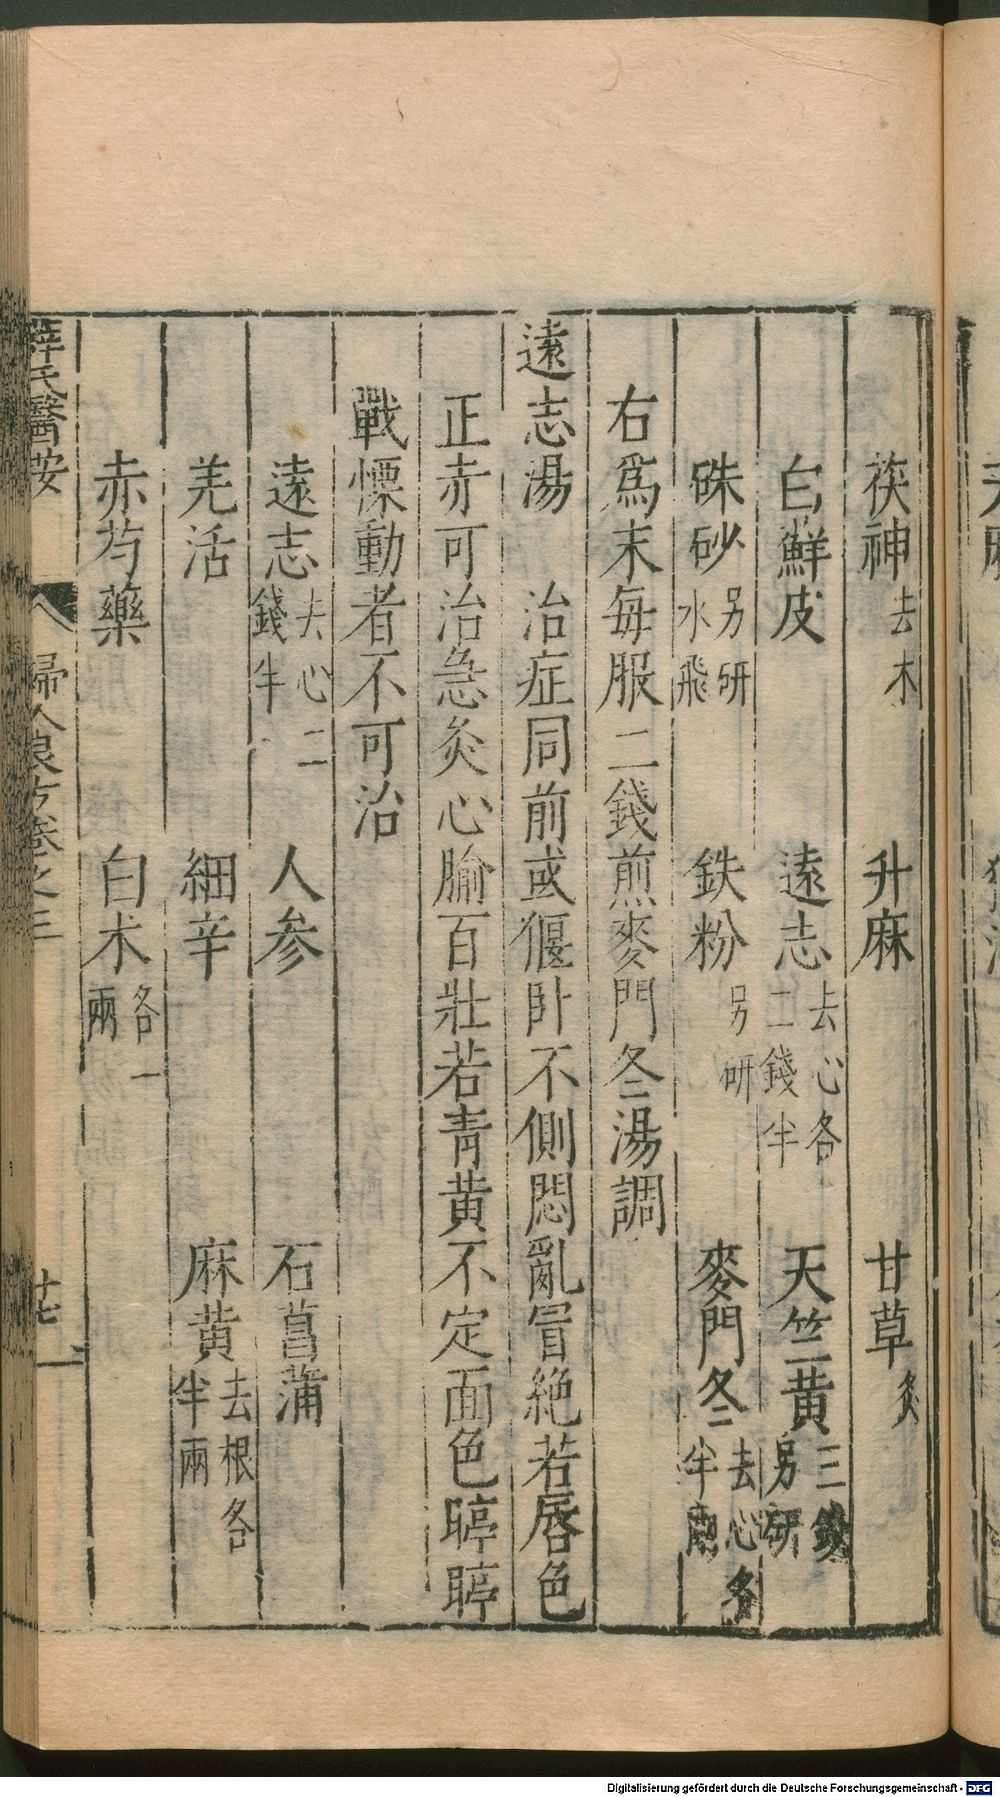 茯神去木　升麻　甘草炙
白鮮皮　遠志去心各二錢半　天竺黃三錢另研
硃砂另研水飛　鉄粉另研　麥門冬去心各半兩
右為末每服二錢煎麥門冬湯調
遠志湯　治症同前或偃卧不側悶亂冒絶若唇色
正赤可治急灸心腧百壯若青黃不定面色䁎䁎
戰慄動者不可治
遠志去心二錢半　人参　石菖蒲
羌活　細辛　麻黄去根各半兩
赤芍藥　白术各一兩
薛氏醫按　婦人良方卷之三　十七
Digitalisierung gefördert durch die Deutsche Forschungsgemeinschaft - DFG